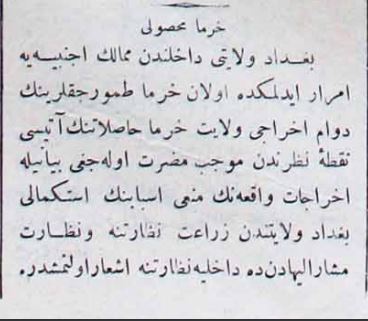 خرما محصولی
بغداد ولایتی داخلندن ممالك اجنبیه‌یه
امرار ایدلمكده اولان خرما طومورجقلرینك
دوام اخراجی ولایت خرما حاصلاتنك آتیسی
نقطهٔ نظرندن موجب مضرت اوله‌جغی بیانیله
اخراجات واقعه‌نك منعی اسبابنك استكمالی
بغداد ولایتندن زراعت نظارتنه ونظارت
مشارالیهادن‌ده داخلیه‌نظارتنه اشعار‌اولنمشدر.